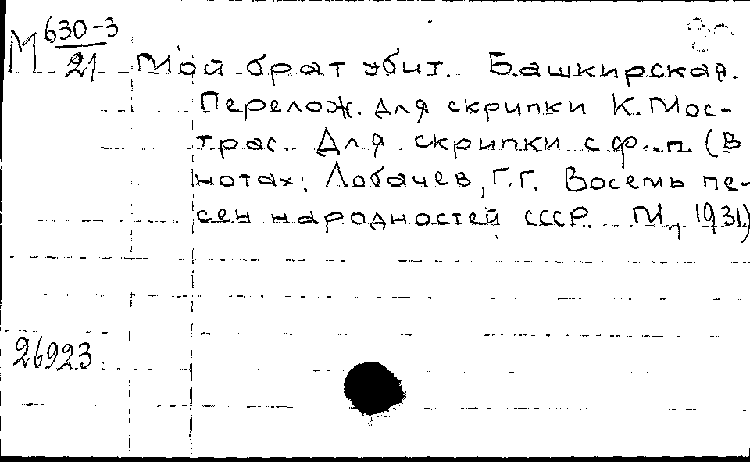 М 630-3
21
Мой брат убит. Башкирская.
Перелож. для скрипки К. Мос-
трас. Для скрипки с ф.-п. (В
нотах: Лобачев, Г.Г. Восемь пе-
сен народностей СССР. М., 1931)
26923